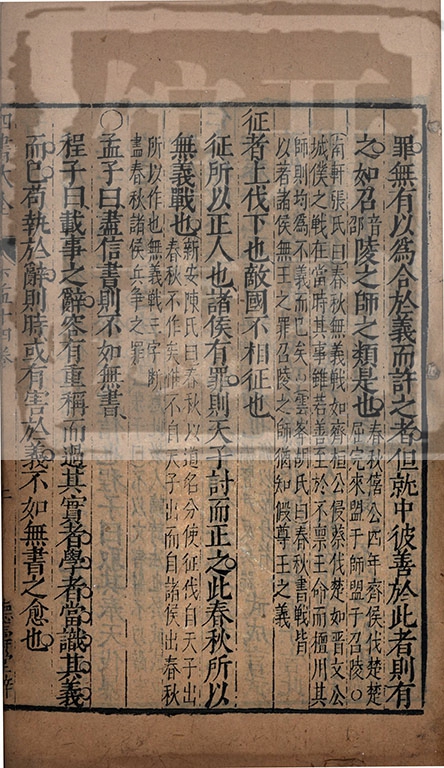 罪無有以爲合於義而許之者但就中彼善於此者則有
之如召音邵陵之師之類是也春秋僖公四年齊侯伐楚楚
屈完來盟于師盟于召陵○
南軒張氏曰春秋無義戰如齊桓公侵蔡伐楚如晉文公
城濮之戰在當時其事雖若善至於不禀王命而擅用其
師則均爲不義而已矣○雲峯胡氏曰春秋書戰皆
以著諸侯無王之罪召陵之師猶知假尊王之義
征者上伐下也敵國不相征也
征所以正人也諸侯有罪則天子討而正之此春秋所以
無義戰也新安陳氏曰春秋以道名分使征伐自天子出
春秋不作矣惟不自天子出而自諸侯出春秋
所以作也無義戰三字斷
盡春秋諸侯兵爭之罪
○孟子曰盡信書則不如無書
程子曰載事之辭容有重稱而過其實者學者當識其義
而已苟執於辭則時或有害於義不如無書之愈也